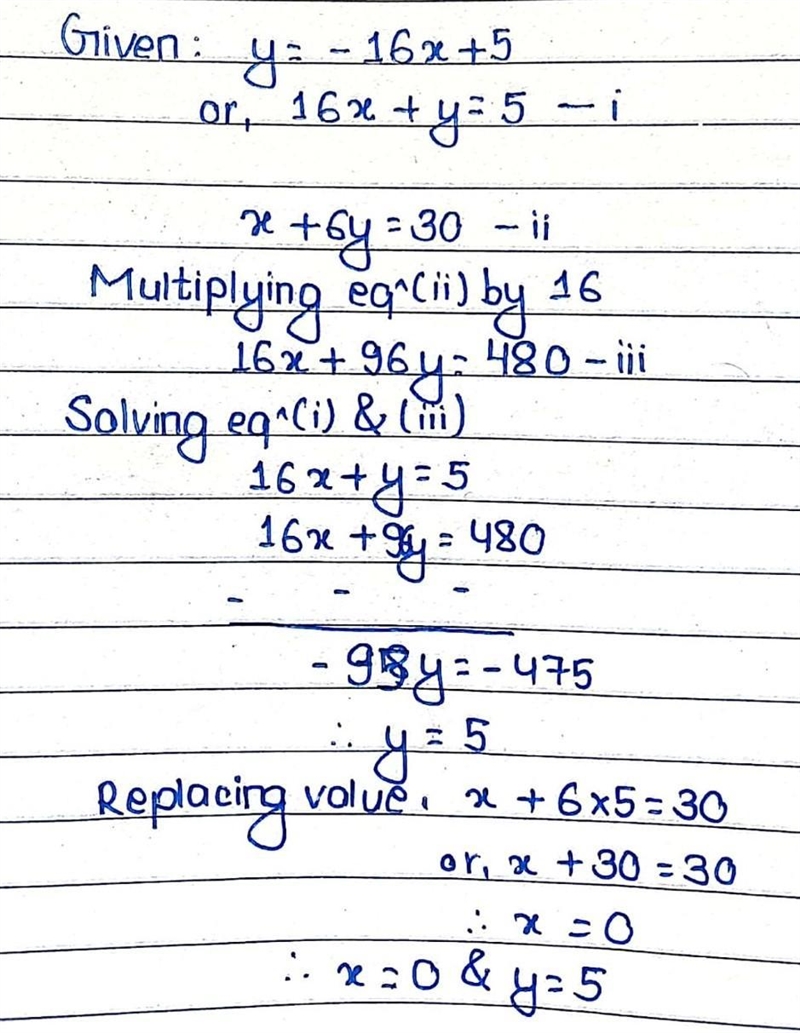 Given: y = - 16x + 5
or, 16x + y = 5 - i
x + 6y = 30 - ii
Multiplying eq^(ii) by 16
16x + 96y = 480 - iii
Solving eq^(i) & (iii)
16x + y = 5
16x + 96y = 480
- - -
- 95y = - 475
∴ y = 5
Replacing value, x + 6×5 = 30
or, x + 30 = 30
∴ x = 0
∴ x = 0 & y = 5